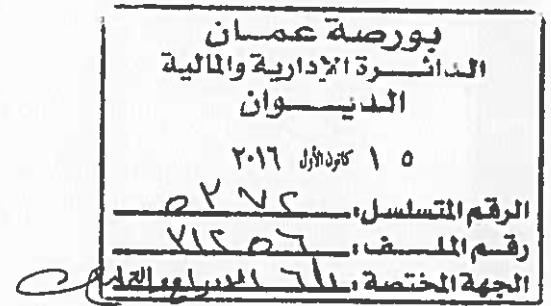 بورصة عمان
الدائرة الإدارية والمالية
الديوان
١٥ كانون الأول ٢٠١٦
الرقم المتسلسل:
رقم الملف: ٧١٢٥٦
الجهة المختصة: